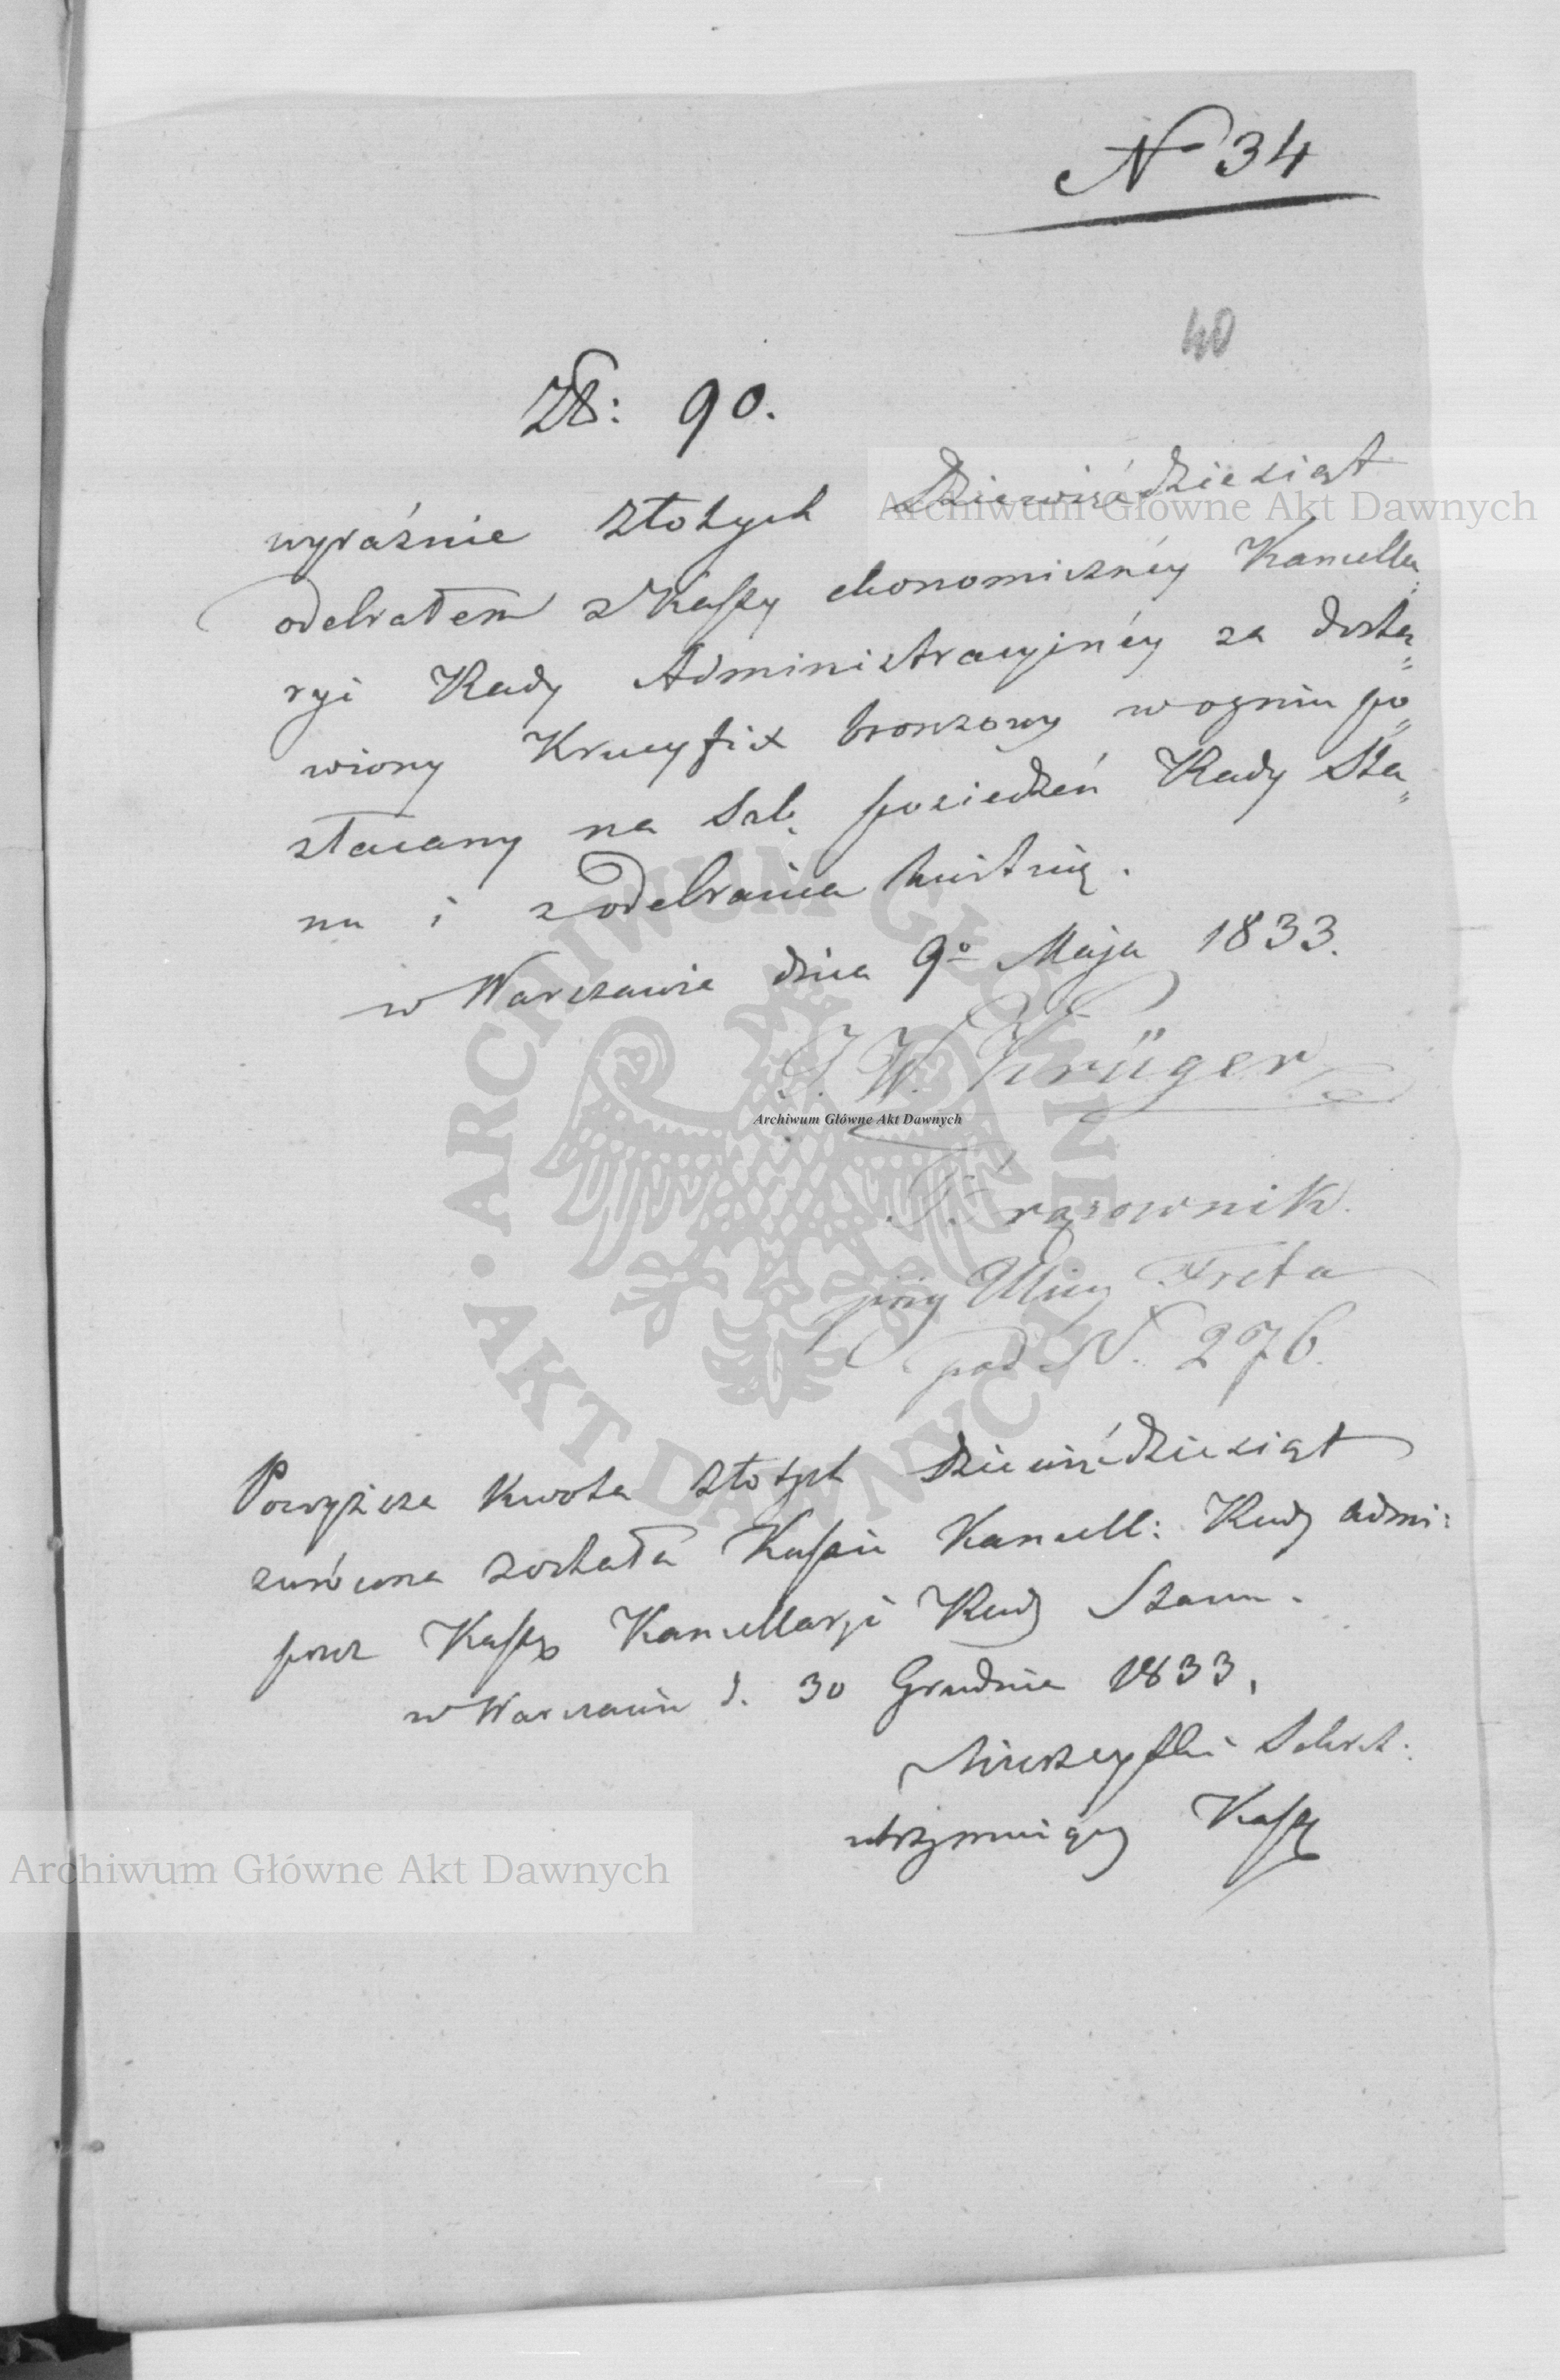 N 34
40
Zł: 90.
wyraźnie złotych Dziewięćdziesiąt
odebrałem z Kassy ekonomicznéy Kancella
ryi Rady Administracyjnéy za dosta„
wiony Krucyfix bronzowy w ogniu po„
złacany na Salę posiedzeń Rady Sta„
nu i z odebrania kwituię.
w Warszawie dnia 9º Maja 1833.
J. W. Krüger
Brązownik.
przy Ulicy Freta
pod N. 276.
Powyższa kwota złotych dziewięćdziesiąt
zwrócona została Kassie Kancell: Rady Admi:
przez Kassę Kancellaryi Rady Stanu.
w Warszawie d. 30 Grudnia 1833.
Sekret:
utrzymuiący Kassę
Archiwum Główne Akt Dawnych
Archiwum Główne Akt Dawnych
Archiwum Główne Akt Dawnych
ARCHIWUM GŁÓWNE AKT DAWNYCH